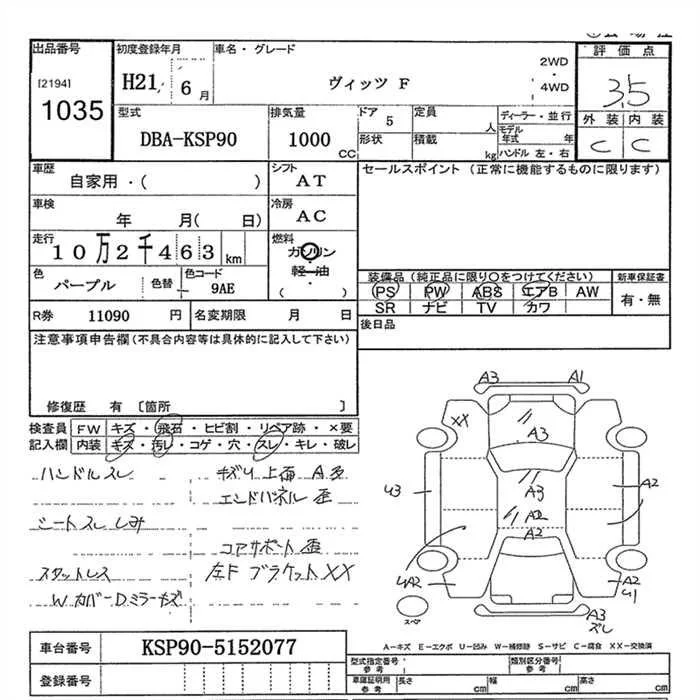 出品番号 初度登録年月 車名・グレード 評価点
[2194] H21, 6月 ヴィッツ F 2WD ・ 4WD 3.5
1035 外装 内装
型式 排気量 ドア 5 定員 人 ディーラー・並行 C C
DBA-KSP90 1000 CC 形状 積載 kg モデル年式 年
ハンドル 左・右
車歴 シフト セールスポイント (正常に機能するものに限ります)
自家用・( ) AT
車検 冷房
年 月( 日) AC
走行 燃料
10万2千463km ガソリン
・
軽油
・
( )
色 色替 色コード 装備品 (純正品に限り○をつけてください) 新車保証書
パープル 9AE PS PW ABS エアB AW 有・無
SR ナビ TV カワ
R券 11090 円 名変期限 月 日 後日品
注意事項申告欄(不具合内容等は具体的に記入して下さい)
修復歴 有 [箇所 ]
検査員 FW キズ・飛石・ヒビ割・リペア跡・×要
記入欄 内装 キズ・汚レ・コゲ・穴・スレ・キレ・破レ
ハンドルスレ
キズU 上面 A多
エンドパネル歪
シートスレしみ
コアサポート歪
スタットレス 左F ブラケットXX
WカバーDミラーキズ
A3 A1
XX
A3
U3 A3 A2
A2
A2
UA2 A2
U1
スペア A3
ズレ
A-キズ E-エクボ U-凹み W-補修跡 S-サビ C-腐食 XX-交換済
車台番号 KSP90-5152077
型式指定番号 参考 類別区分番号 参考
登録番号 車庫証明用 参考 長さ cm 幅 cm 高さ cm